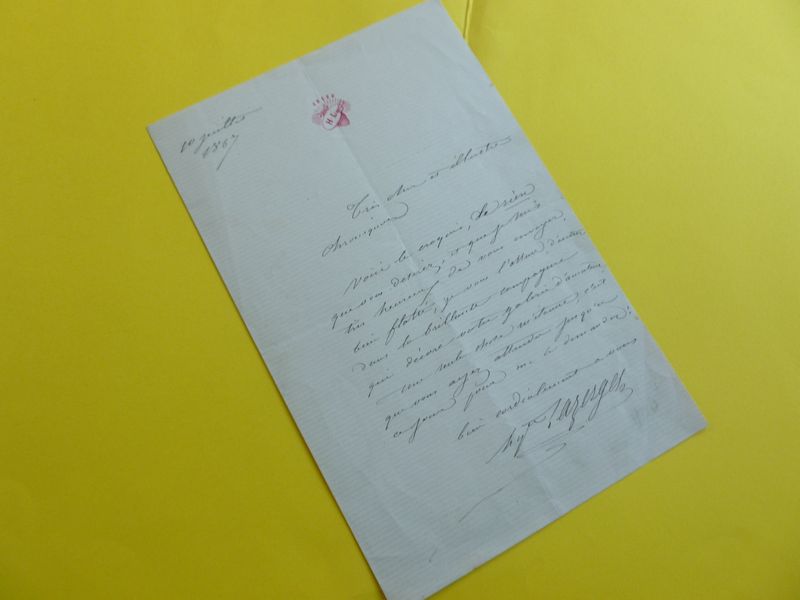 10 juillet
1867
HL
Très cher et illustre
chroniqueur
Voici le croquis, le rien
que vous désirez, et que je suis
très heureux de vous envoyer,
bien flatté, je vous l'assure d'entrer
dans la brillante compagnie
qui décore votre galerie d'amateur.
Une seule chose m'étonne, c'est
que vous ayez attendu jusqu'à
ce jour pour me le demander!
bien cordialement à vous
hyte Lazerges